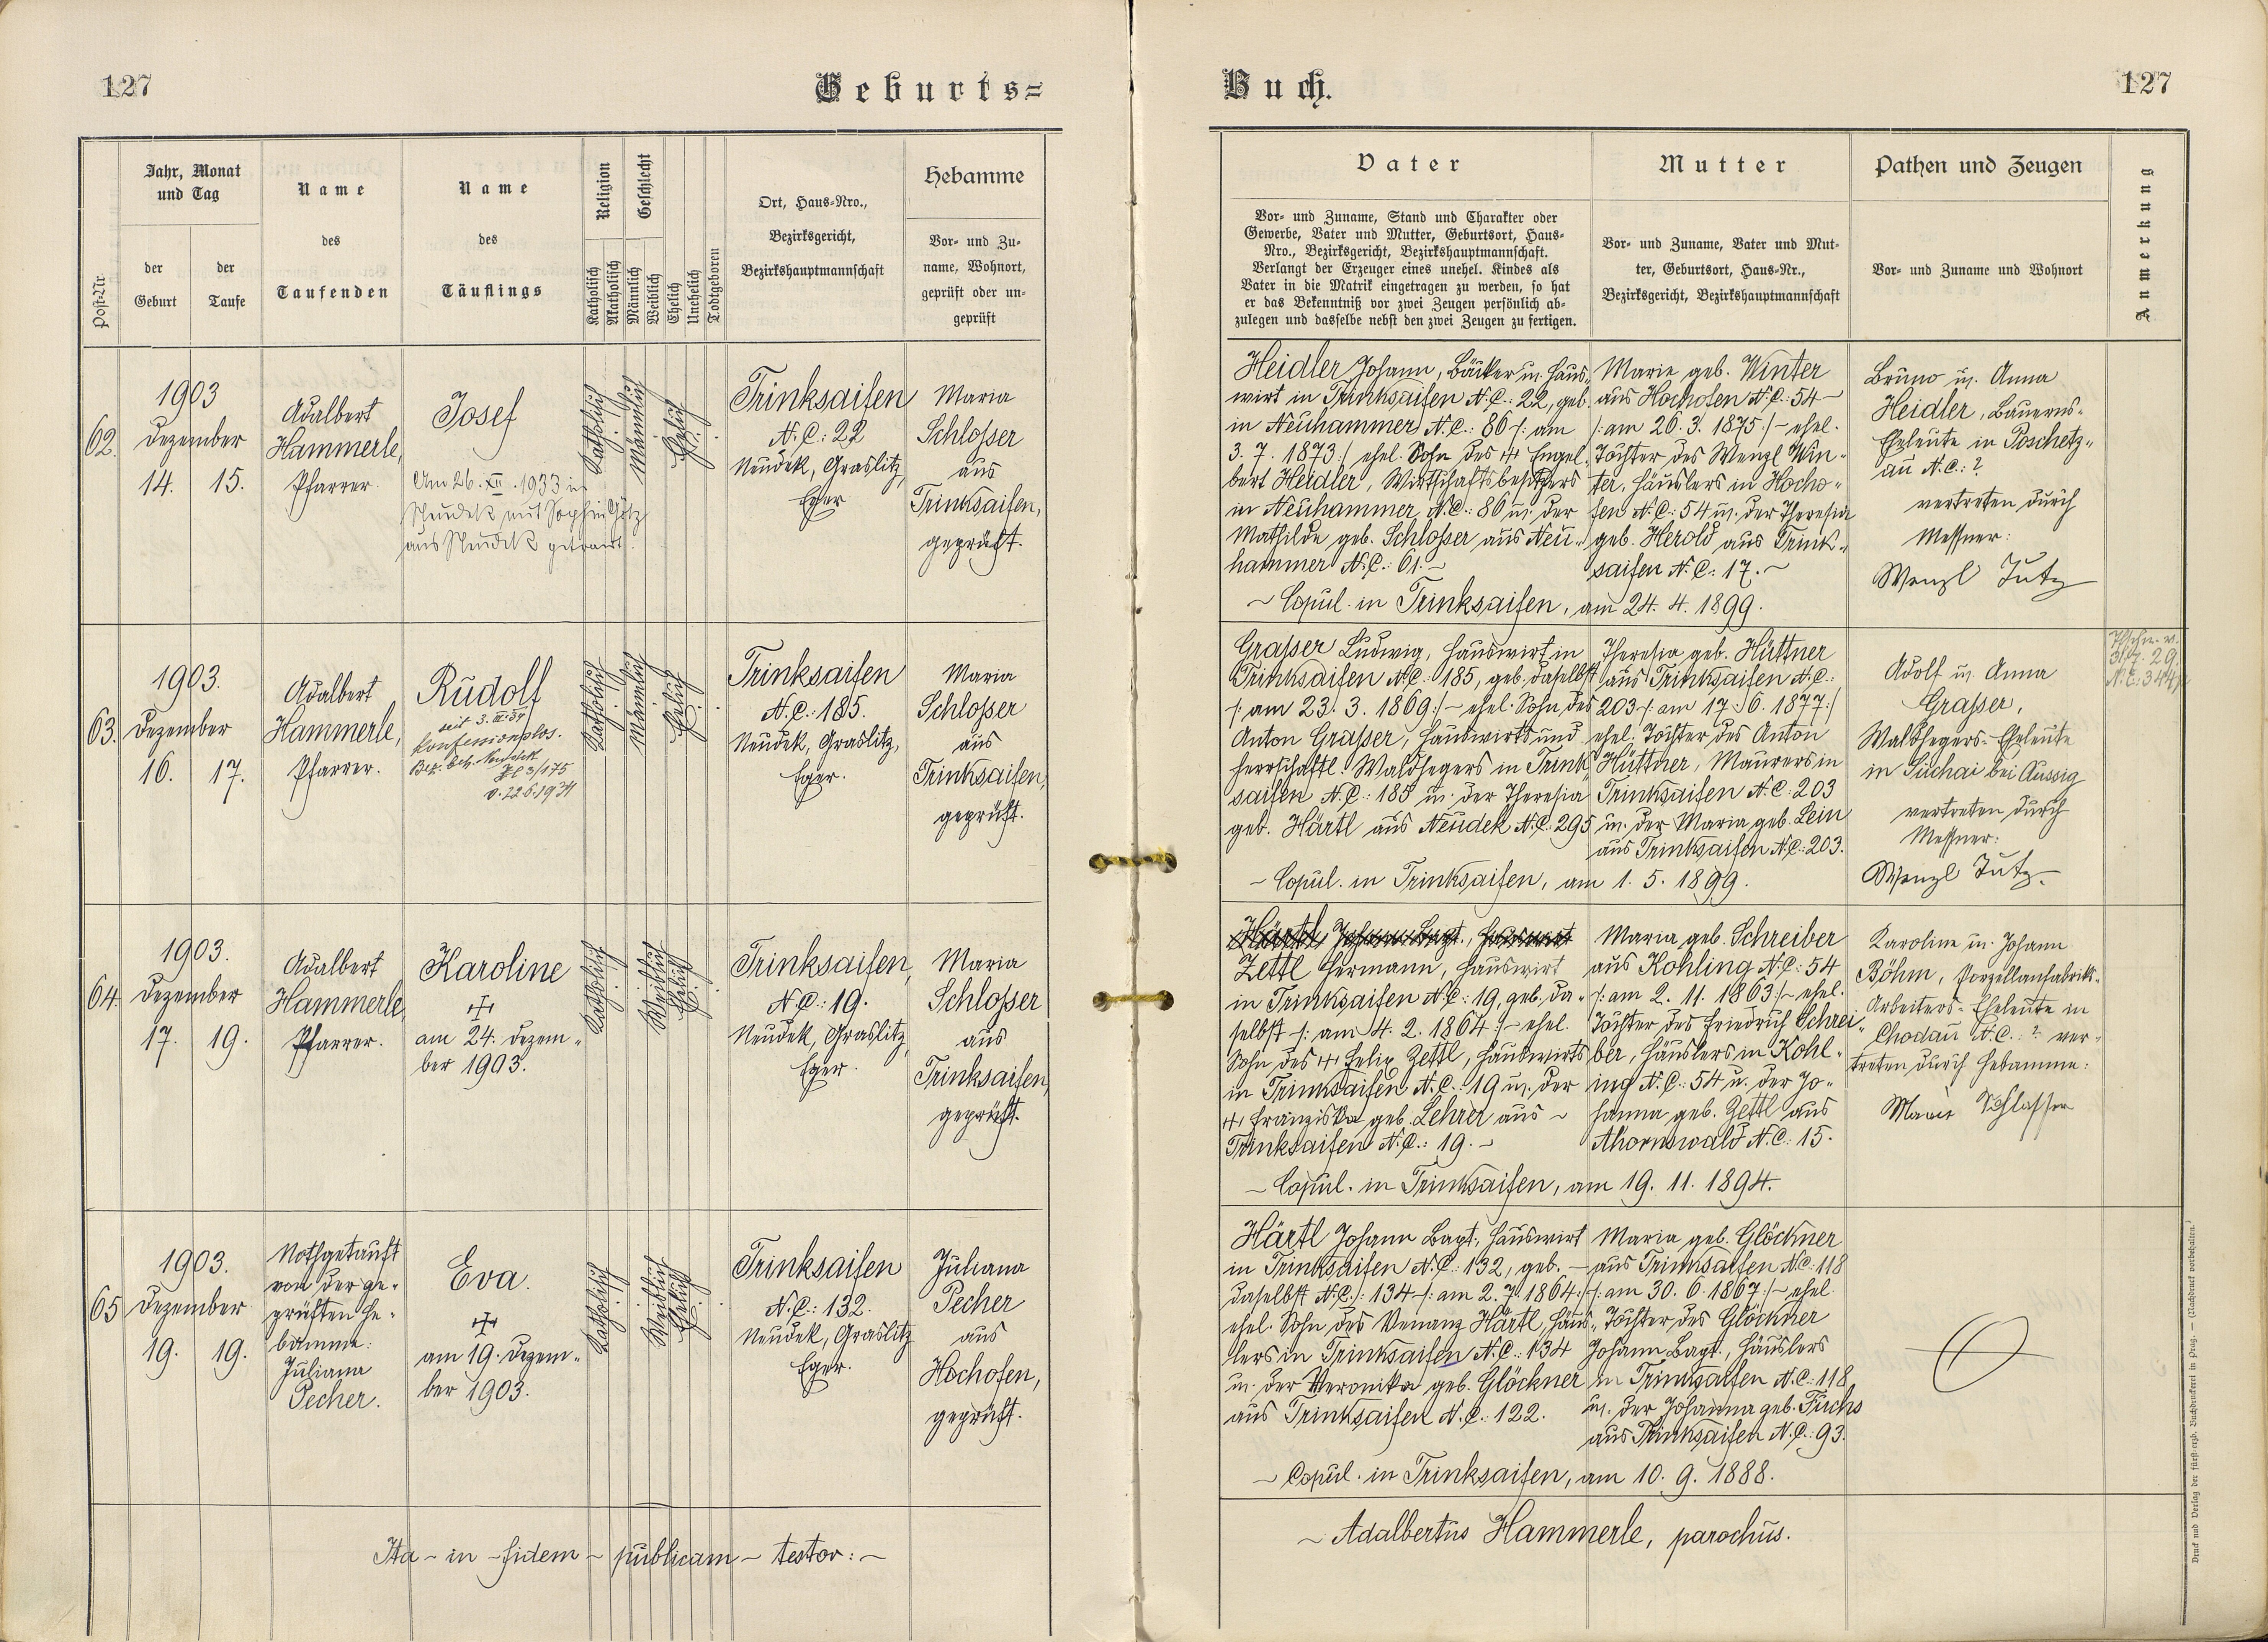 127
Geburts=
Post-Nr.
Jahr, Monat
und Tag
der
Geburt
der
Taufe
Name
des
Taufenden
Name
des
Täuflings
Religion
Katholisch
Akatholisch
Geschlecht
Männlich
Weiblich
Ehelich
Unehelich
Todtgeboren
Ort, Haus-Nro.,
Bezirksgericht,
Bezirkshauptmannschaft
Hebamme
Vor- und Zu-
name, Wohnort,
geprüft oder un-
geprüft
62.
1903
Dezember
14. 15.
Adalbert
Hammerle,
Pfarrer.
Josef
Am 26. XII. 1933 in
Neudek mit Sophie Götz
aus Neudek getraut.
Katholisch
Männlich
Ehelich
Trinksaifen
N.C.: 22
Neudek, Graslitz,
Eger
Maria
Schlosser
aus
Trinksaifen,
geprüft.
63.
1903.
Dezember
16. 17.
Adalbert
Hammerle,
Pfarrer.
Rudolf
seit 3. III. 34
konfessionslos.
Bez. beh. Neudek
v. 22.6.1934
Katholisch
Männlich
Ehelich
Trinksaifen
N.C.: 185.
Neudek, Graslitz,
Eger.
Maria
Schlosser
aus
Trinksaifen,
geprüft.
64.
1903.
Dezember
17. 19.
Adalbert
Hammerle,
Pfarrer.
Karoline
am 24. Dezem-
ber 1903.
Katholisch
Weiblich
Ehelich
Trinksaifen,
N.C.: 19.
Neudek, Graslitz,
Eger.
Maria
Schlosser
aus
Trinksaifen,
geprüft.
65
1903.
Dezember
19. 19.
Nothgetauft
von der ge-
prüften He-
bamme:
Juliana
Pecher.
Eva.
am 19. Dezem-
ber 1903.
Katholisch
Weiblich
Ehelich
Trinksaifen
N.C.: 132.
Neudek, Graslitz
Eger.
Juliana
Pecher
aus
Hochofen,
geprüft.
Ita - in - fidem - publicam - testor: -
Buch.
127
Vater
Vor- und Zuname, Stand und Charakter oder
Gewerbe, Vater und Mutter, Geburtsort, Haus-
Nro., Bezirksgericht, Bezirkshauptmannschaft.
Verlangt der Erzeuger eines unehel. Kindes als
Vater in die Matrik eingetragen zu werden, so hat
er das Bekenntniß vor zwei Zeugen persönlich ab-
zulegen und dasselbe nebst den zwei Zeugen zu fertigen.
Mutter
Vor- und Zuname, Vater und Mut-
ter, Geburtsort, Haus-Nr.,
Bezirksgericht, Bezirkshauptmannschaft
Pathen und Zeugen
Vor- und Zuname und Wohnort
Anmerkung
Heidler Johann, Bäcker u. Haus-
wirt in Trinksaifen N.C.: 22, geb.
in Neuhammer N.C.: 86 /: am
3. 7. 1873 :/ ehel. Sohn des + Engel-
bert Heidler, Wirtschaftsbesitzers
in Neuhammer N.C.: 86 u. der
Mathilde geb. Schlosser aus Neu-
hammer N.C.: 61. -
Marie geb. Winter
aus Hochofen N.C.: 54 -
/: am 26. 3. 1875 :/ - ehel.
Tochter des Wenzl Win-
ter, Häuslers in Hocho-
fen N.C.: 54 u. der Theresia
geb. Herold aus Trink-
saifen N.C.: 17. -
- Copul. in Trinksaifen, am 24. 4. 1899.
Bruno u. Anna
Heidler, Bauerns-
Eheleute in Poschetz-
au N.C.: ?
vertreten durch
Messner:
Wenzl Tutz
Grasser Ludwig, Hauswirt in
Trinksaifen N.C.: 185, geb. daselbst
/: am 23. 3. 1869 :/ - ehel. Sohn des
Anton Grasser, Hauswirts und
herrschaftl. Waldhegers in Trink-
saifen N.C.: 185 u. der Theresia
geb. Härtl aus Neudek N.C.: 295
Theresia geb. Hüttner
aus Trinksaifen N.C.:
203 /: am 17. 6. 1877 :/
ehel. Tochter des Anton
Hüttner, Maurers in
Trinksaifen N.C.: 203
u. der Maria geb. Lein
aus Trinksaifen N.C.: 203.
- Copul. in Trinksaifen, am 1. 5. 1899.
Adolf u. Anna
Grasser,
Waldhegers-Eheleute
in Suchai bei Aussig
vertreten durch
Messner:
Wenzl Tutz
31.7.29.
Härtl Johann Bapt., Hauswirt
Zettl Hermann, Hauswirt
in Trinksaifen N.C.: 19, geb. da-
selbst /: am 4. 2. 1864 :/ - ehel.
Sohn des + Felix Zettl, Hauswirts
in Trinksaifen N.C.: 19 u. der
+ Franziska geb. Lehrer aus -
Trinksaifen N.C.: 19. -
Maria geb. Schreiber
aus Kohling N.C.: 54
/: am 2. 11. 1863 :/ - ehel.
Tochter des Friedrich Schrei-
ber, Häuslers in Kohl-
ing N.C.: 54 u. der Jo-
hanna geb. Zettl aus
Ahornswald N.C.: 15.
- Copul. in Trinksaifen, am 19. 11. 1894.
Karoline u. Johann
Böhm, Porzellanfabriks-
Arbeiters-Eheleute in
Chodau N.C.: ? ver-
treten durch Hebamme:
Maria Schlosser
Härtl Johann Bapt., Hauswirt
in Trinksaifen N.C.: 132, geb. -
daselbst N.C.: 134 /: am 2. 7. 1864 :/
ehel. Sohn des Venanz Härtl, Häus-
lers in Trinksaifen N.C.: 134
u. der Veronika geb. Glöckner
aus Trinksaifen N.C.: 122.
Maria geb. Glöckner
aus Trinksaifen N.C.: 118
/: am 30. 6. 1867 :/ - ehel.
Tochter des Glöckner
Johann Bapt., Häuslers
in Trinksaifen N.C.: 118
u. der Johanna geb. Fuchs
aus Trinksaifen N.C.: 93.
- Copul. in Trinksaifen, am 10. 9. 1888.
- Adalbertus Hammerle, parochus.
Druck und Verlag der fürst-erzb. Buchdruckerei in Prag. - (Nachdruck vorbehalten.)